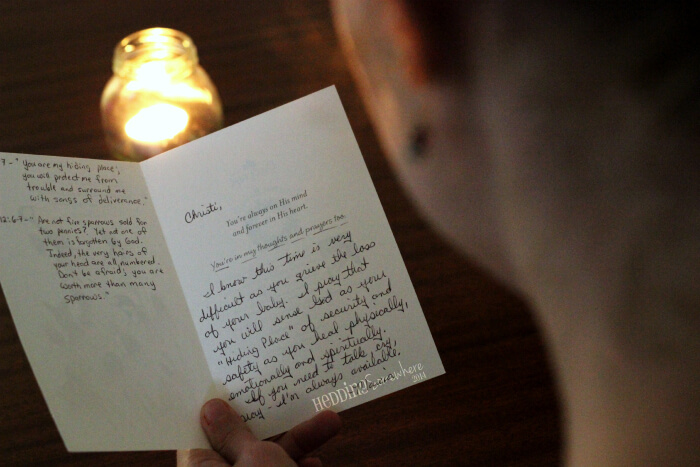 7-"You are my hiding place;
you will protect me from
trouble and surround me
with songs of deliverance."
12:6-7-"Are not five sparrows sold for
two pennies? Yet not one of
them is forgotten by God.
Indeed, the very hairs of
your head are all numbered.
Don't be afraid; you are
worth more than many
sparrows."
Christi,
You're always on His mind
and forever in His heart.
You're in my thoughts and prayers too.
I know this time is very
difficult as you grieve the loss
of your baby. I pray that
you will sense God as your
"Hiding Place" of security and
safety as you heal physically,
emotionally and spiritually.
If you need to talk, cry,
pray - I'm always available.
HEDDINGSomewhere
2014